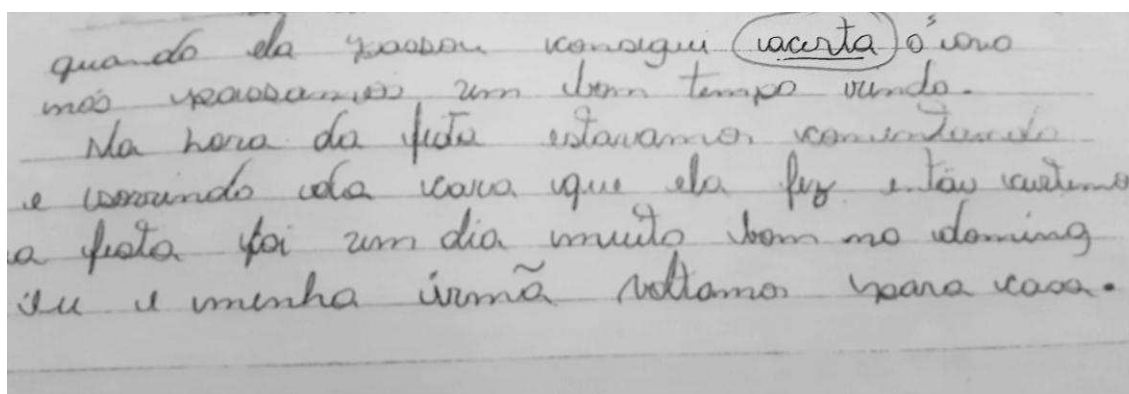 quando ela passou consegui acerta o ovo
nós passamos um bom tempo rindo.
Na hora da festa estavamos comentando
e sorrindo da cara que ela fez então curtimo
a festa foi um dia muito bom no doming
eu e minha irmã voltamos para casa.